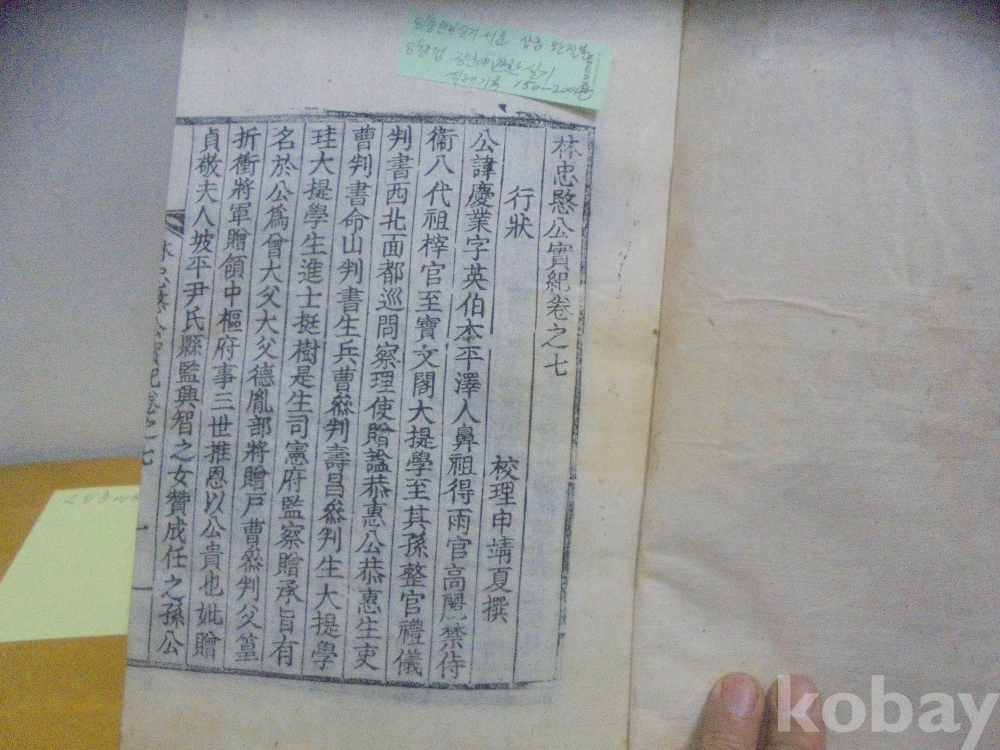 林忠愍公實紀卷之七
行狀
校理申靖夏撰
公諱慶業字英伯本平澤人鼻祖得雨官高麗禁侍
衞八代祖梓官至寶文閣大提學至其孫整官禮儀
判書西北面都巡問察理使贈謚恭惠公恭惠生吏
曹判書命山判書生兵曹叅判壽昌叅判生大提學
珪大提學生進士挺樹是生司憲府監察贈承旨有
名於公爲曾大父大父德胤部將贈戶曹叅判父篁
折衝將軍贈領中樞府事三世推恩以公貴也妣贈
貞敬夫人坡平尹氏縣監興智之女贊成任之孫公
卷之七
一
150-200
kobay